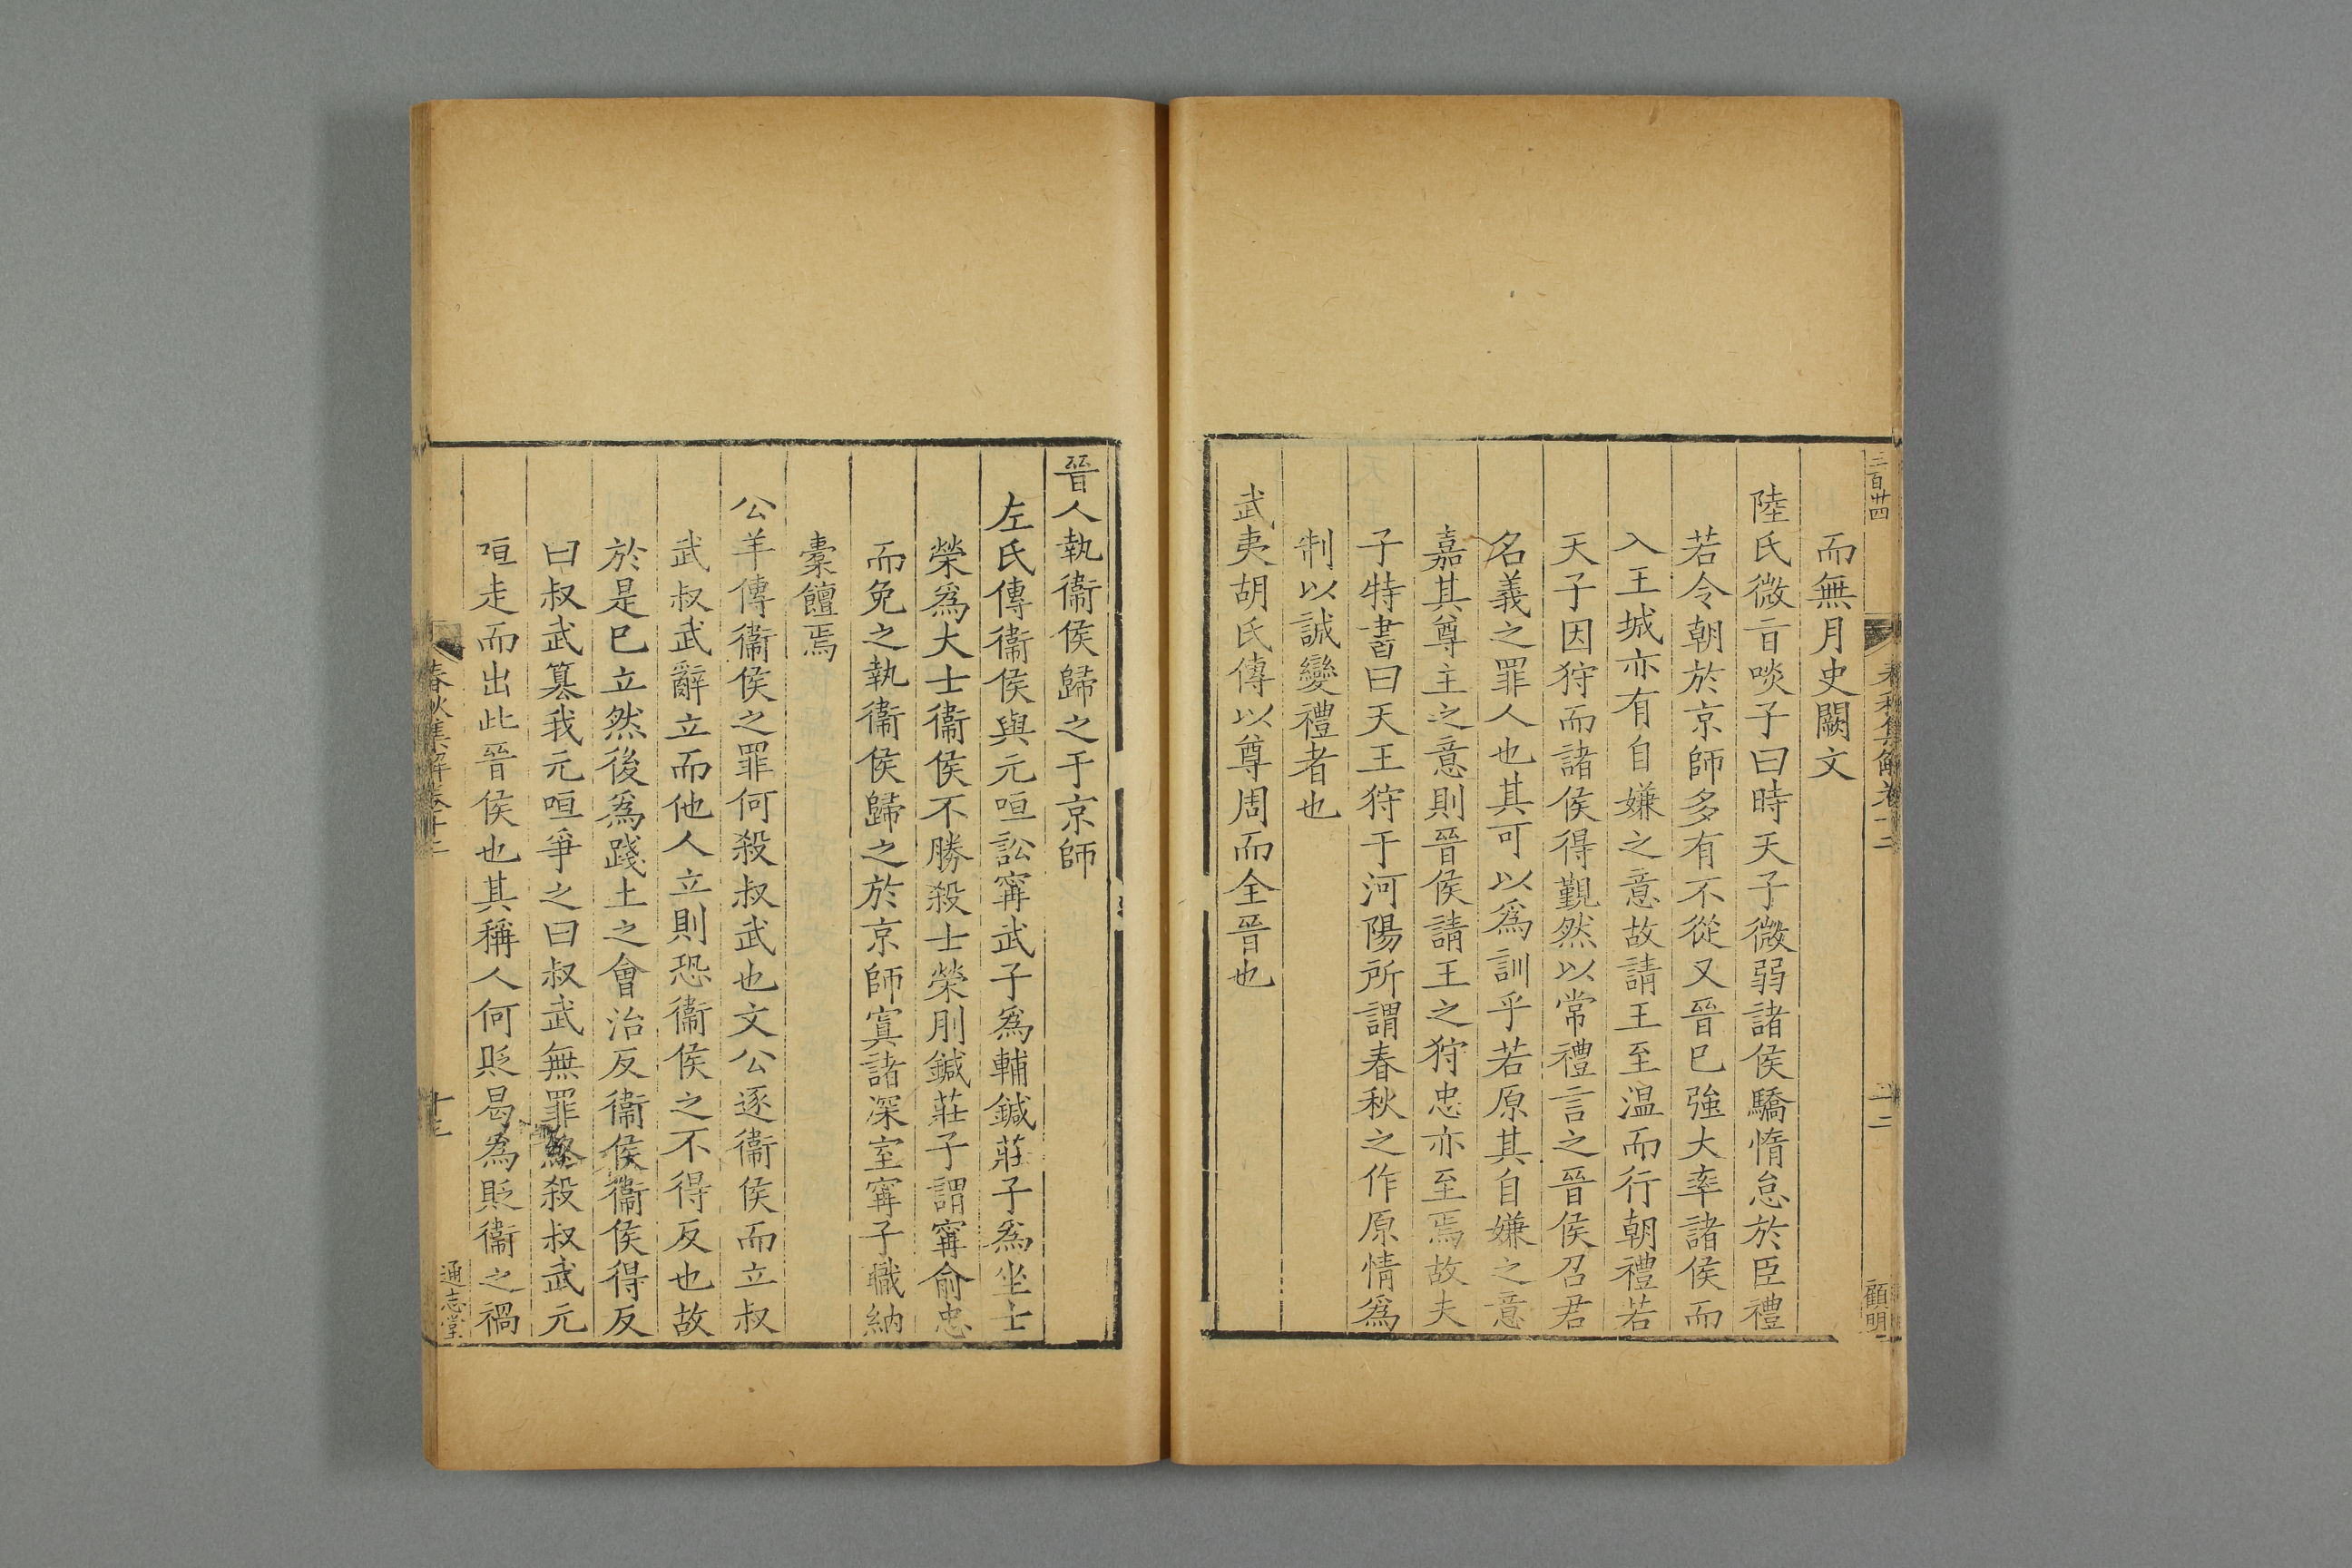 三百卅四
春秋集解卷十二
十二
顧明
而無月史闕文
陸氏微旨啖子曰時天子微弱諸侯驕惰怠於臣禮
若令朝於京師多有不從又晉已強大率諸侯而
入王城亦有自嫌之意故請王至温而行朝禮若
天子因狩而諸侯得覲然以常禮言之晉侯召君
名義之罪人也其可以為訓乎若原其自嫌之意
嘉其尊主之意則晉侯請王之狩忠亦至焉故夫
子特書曰天王狩于河陽所謂春秋之作原情為
制以誠變禮者也
武夷胡氏傳以尊周而全晉也
晉人執衞侯歸之于京師
左氏傳衞侯與元咺訟甯武子為輔鍼莊子為坐士
榮為大士衞侯不勝殺士榮刖鍼莊子謂甯俞忠
而免之執衞侯歸之於京師寘諸深室甯子職納
橐饘焉
公羊傳衞侯之罪何殺叔武也文公逐衞侯而立叔
武叔武辭立而他人立則恐衞侯之不得反也故
於是已立然後為踐土之會治反衞侯衞侯得反
曰叔武簒我元咺爭之曰叔武無罪終殺叔武元
咺走而出此晉侯也其稱人何貶曷為貶衞之禍
春秋集解卷十二
十三
通志堂